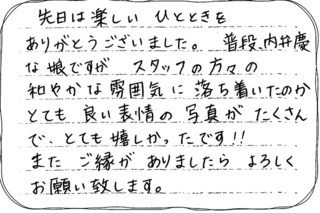 先日は楽しい ひとときを
ありがとうございました。 普段、内弁慶
な娘ですが スタッフの方々の
和やかな雰囲気に 落ち着いたのか
とても 良い表情の 写真が たくさん
で、とても嬉しかったです!!
また ご縁が ありましたら よろしく
お願い致します。